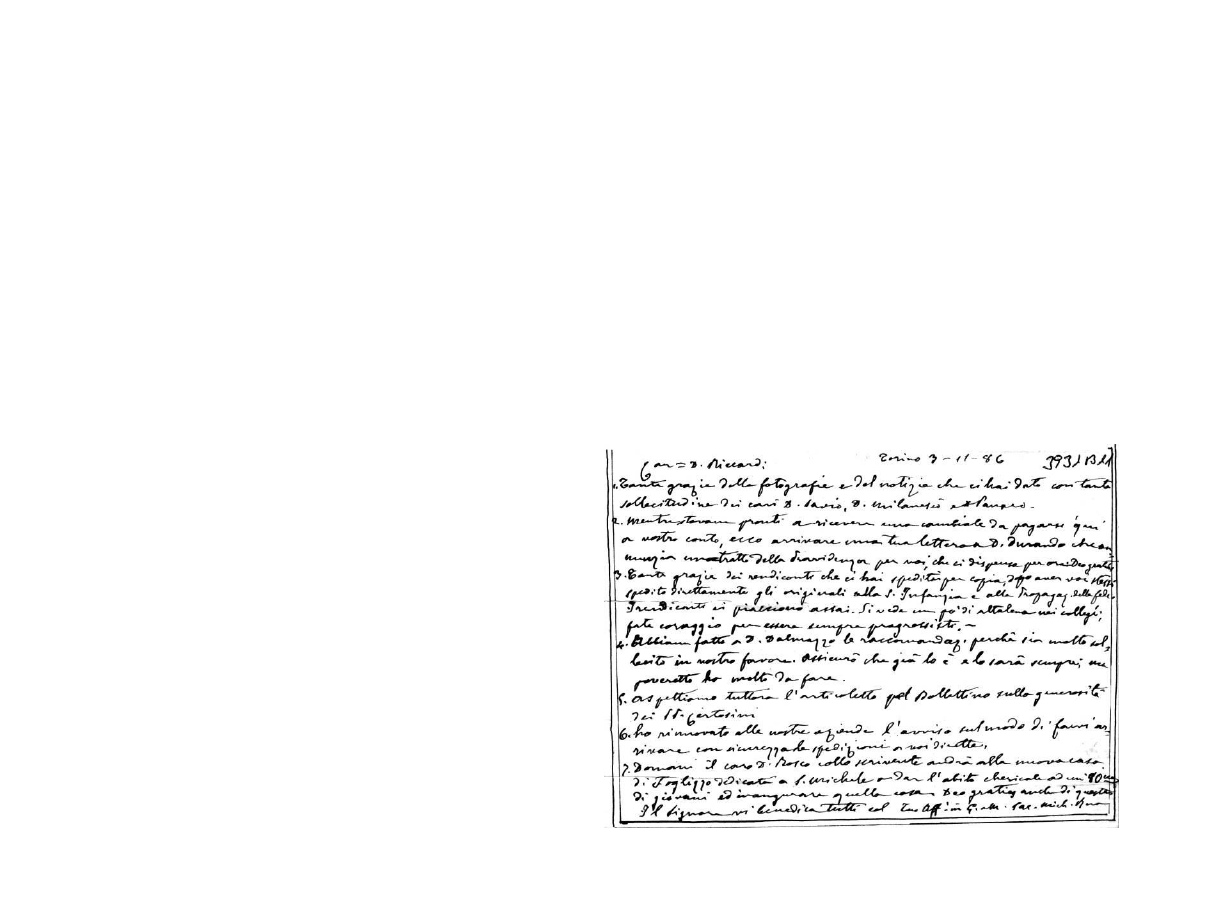 Car= D. Riccardi: Torino 3-11-86 3931 B11
1. Tante grazie delle fotografie e del notizia che ci hai dato con tanta
sollecitudine dei cari D. Savio, D. Milanesio e Panaro.
2. Mentre stavam pronti a ricevere una cambiale da pagarsi qui
a vostro conto, ecco arrivare una tua lettera a D. Durando che an,
nunzia un tratto della Provvidenza per voi, che ci dispensa per ora. Deo gratias
3. Tante grazie dei rendiconti che ci hai spediti per copia, dopo aver voi stessi
spedito direttamente gli originali alla S. Infanzia e alla Propagaz. della fede.
I rendiconti ci piacciono assai. Si vede un po' di altalena nei collegi;
fate coraggio per essere sempre progressisti. ~
4. Abbiam fatto a D. Dalmazzo le raccomandaz. perchè sia molto sol,
lecito in vostro favore. Assicurò che già lo è e lo sarà sempre; ma
poveretto ha molto da fare.
5. Aspettiamo tuttora l'articoletto pel Bollettino sulla generosità
dei SS. Certosini
6. Ho rinnovato alle vostre aziende l'avviso sul modo di farvi ar,
rivare con sicurezza le spedizioni a voi dirette.
7. Domani il caro D. Bosco collo scrivente andrà alla nuova casa
di Foglizzo dedicata a S. Michele a dar l'abito chericale ad un 80
di giovani ed inaugurare quella casa. Deo gratias anche di questo
Il Signore vi benedica tutti col tuo Aff. in G. e M. Sac. Mich. Rua